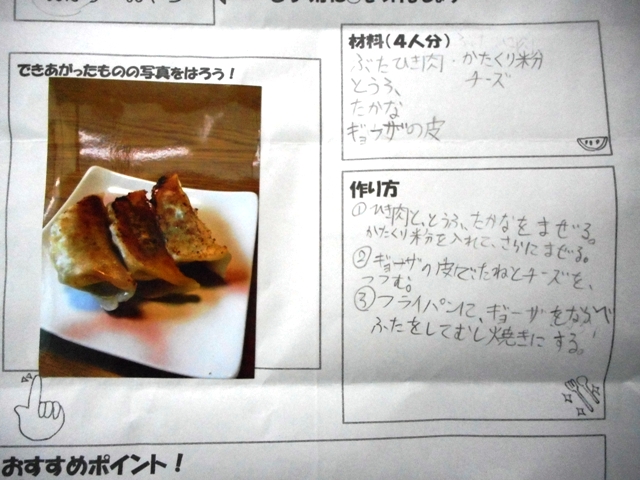 できあがったものの写真をはろう！
材料（４人分）
ぶたひき肉・かたくり米分
とうふ、 チーズ
たかな
ギョーザの皮
作り方
① ひき肉と、とうふ、たかなをまぜる。
かたくり米分を入れて、さらにまぜる。
② ギョーザの皮でたねとチーズを、
つつむ。
③ フライパンに、ギョーザをならべ
ふたをしてむし焼きにする。
おすすめポイント！